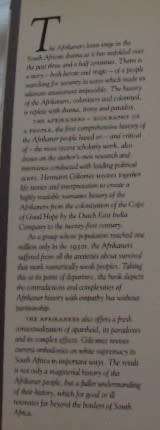 The Afrikaners loom large in the
South African drama as it has unfolded over
the past three and a half centuries. Theirs is
a story – both heroic and tragic – of a people
searching for security in ways which made its
ultimate attainment impossible. The history
of the Afrikaners, colonisers and colonised,
is replete with drama, irony and paradox.
THE AFRIKANERS – BIOGRAPHY OF
A PEOPLE, the first comprehensive history of
the Afrikaner people based on – and critical
of – the most recent scholarly work, also
draws on the author's own research and
interviews conducted with leading political
actors. Hermann Giliomee weaves together
life stories and interpretation to create a
highly readable narrative history of the
Afrikaners from the colonisation of the Cape
of Good Hope by the Dutch East India
Company to the twenty-first century.
As a group whose population reached one
million only in the 1930s, the Afrikaners
suffered from all the anxieties about survival
that mark numerically weak peoples. Taking
this as its point of departure, the book depicts
the contradictions and complexities of
Afrikaner history with empathy but without
partisanship.
THE AFRIKANERS also offers a fresh
contextualisation of apartheid, its paradoxes
and its complex effects. Giliomee revises
current orthodoxies on white supremacy in
South Africa in important ways. The result
is not only a magisterial history of the
Afrikaner people, but a fuller understanding
of their history, which for good or ill
resonates far beyond the borders of South
Africa.